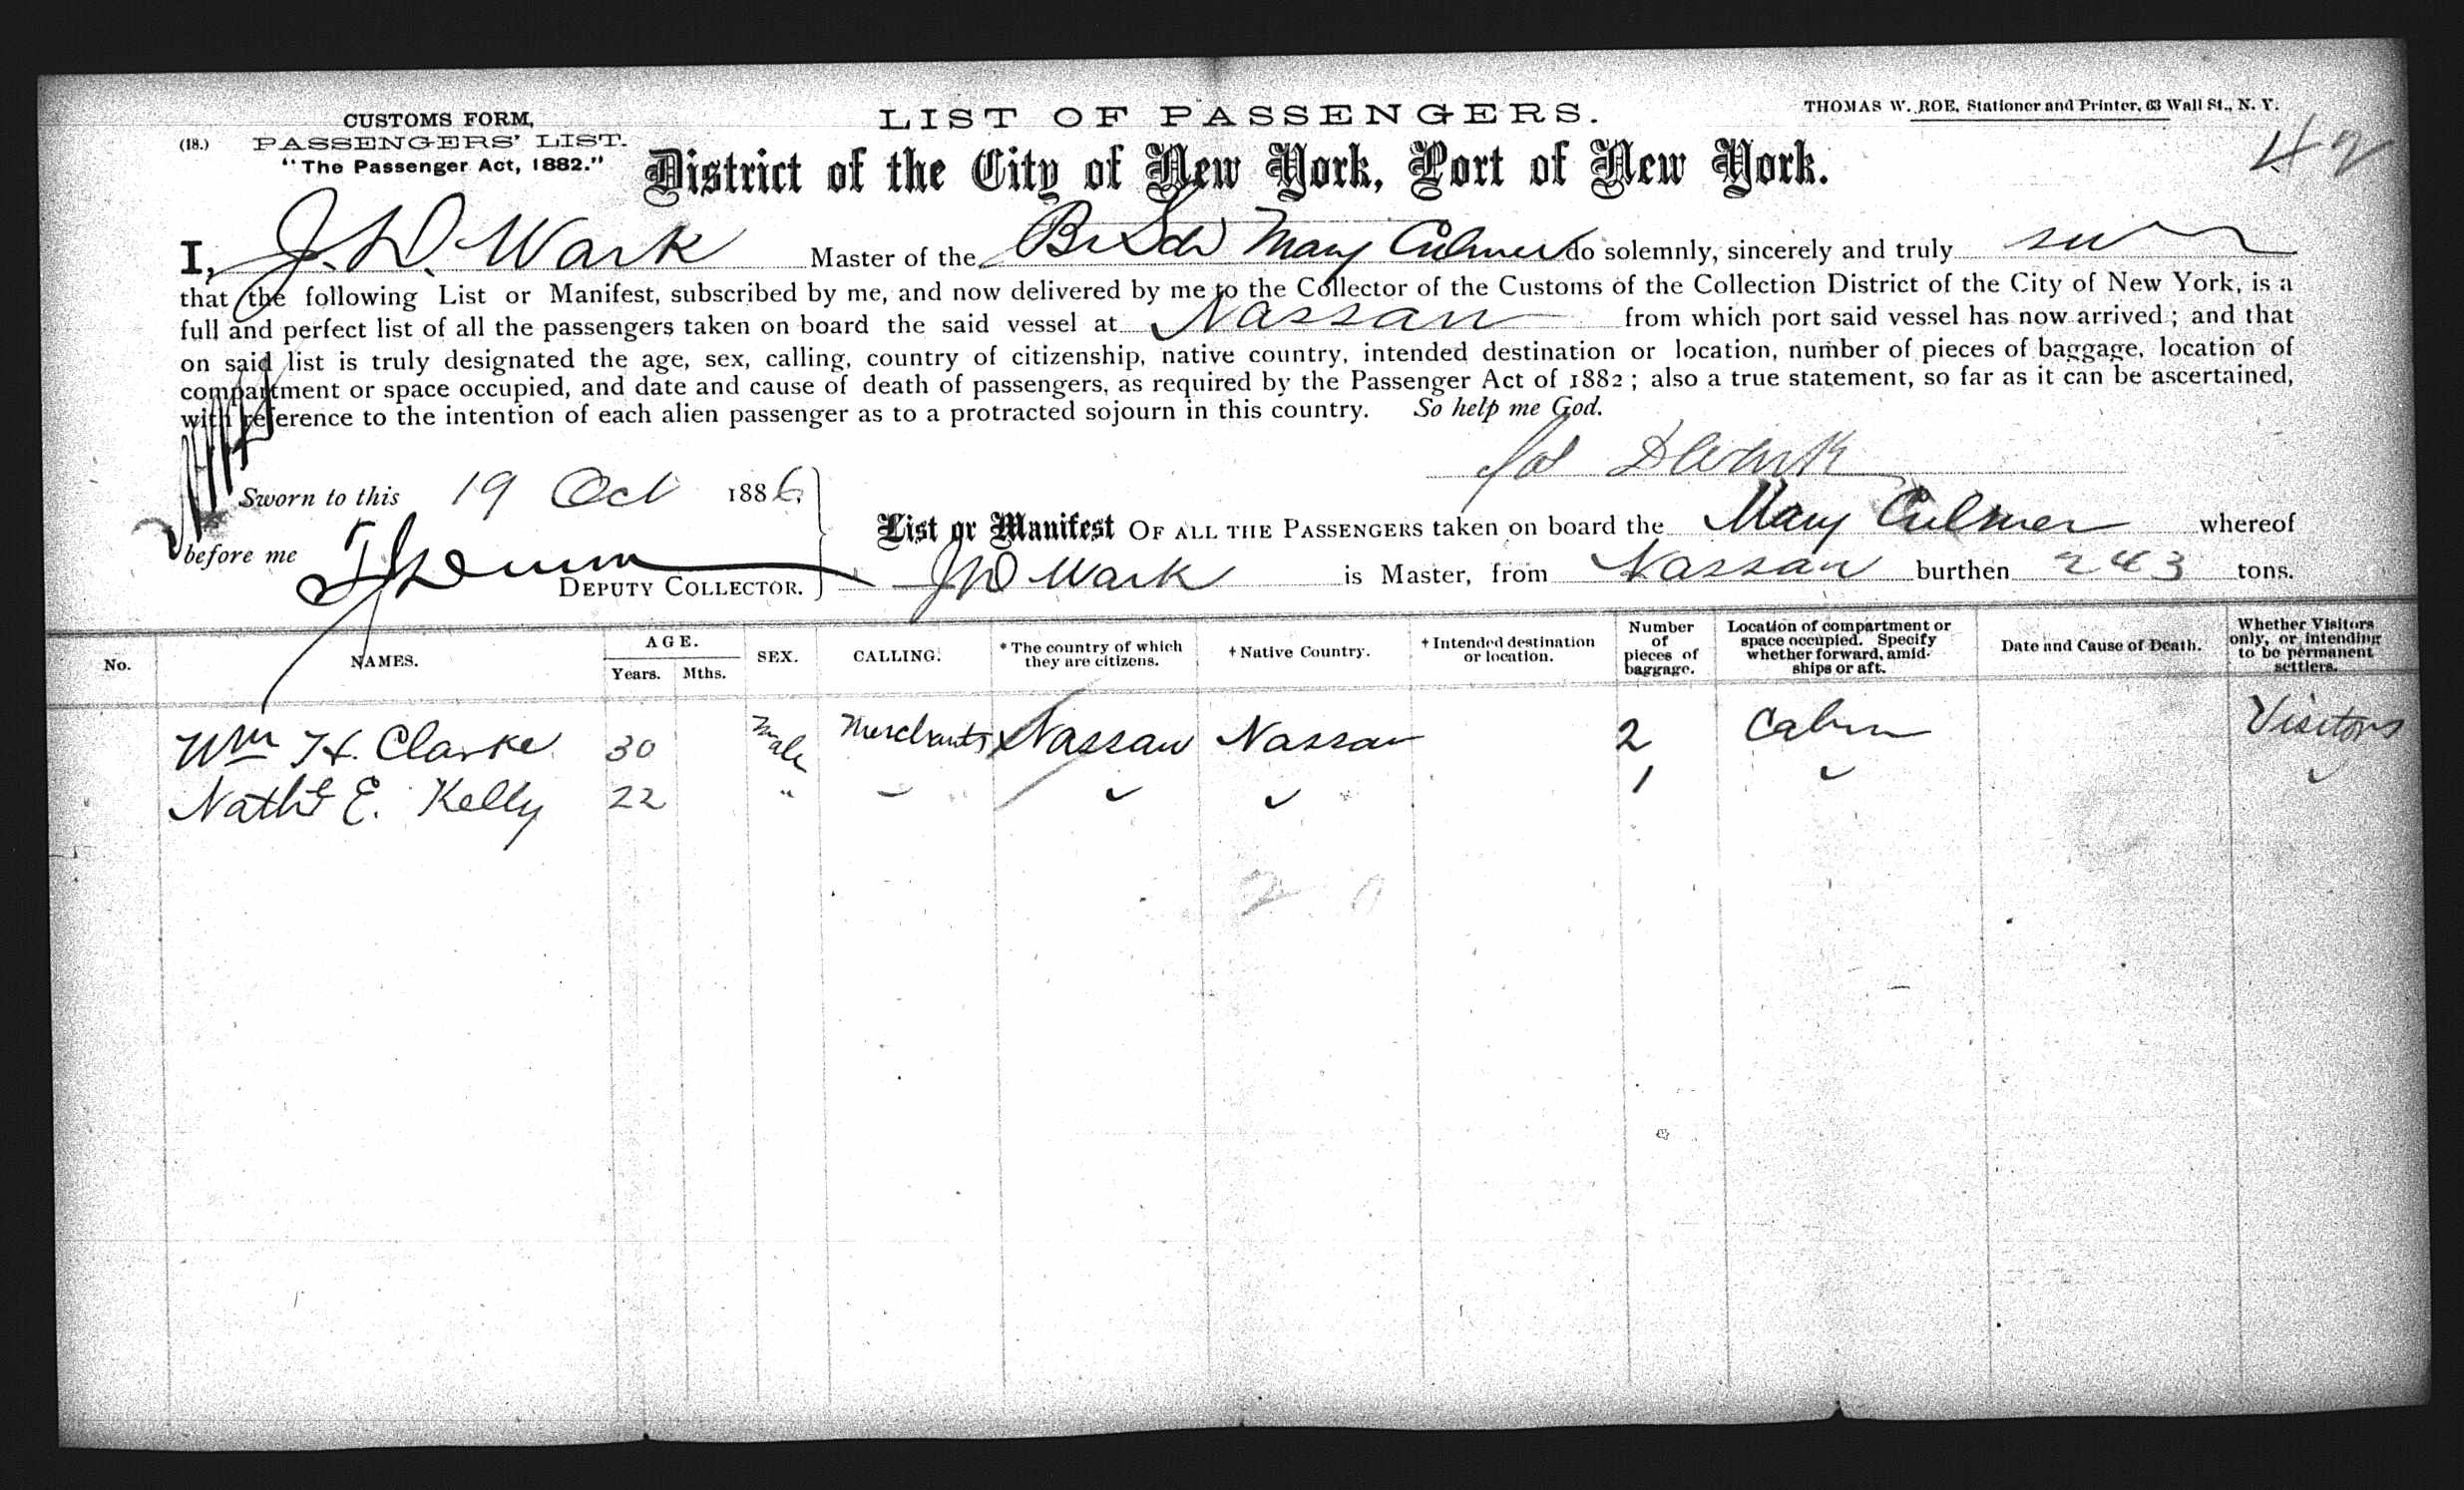 CUSTOMS FORM,
(18.) PASSENGERS' LIST.
"The Passenger Act, 1882."
LIST OF PASSENGERS.
THOMAS W. ROE, Stationer and Printer, 63 Wall St., N. Y.
42
District of the City of New York, Port of New York.
I, J. D. Wark Master of the Br Sch Mary Culmer do solemnly, sincerely and truly
that the following List or Manifest, subscribed by me, and now delivered by me to the Collector of the Customs of the Collection District of the City of New York, is a
full and perfect list of all the passengers taken on board the said vessel at Nassau from which port said vessel has now arrived; and that
on said list is truly designated the age, sex, calling, country of citizenship, native country, intended destination or location, number of pieces of baggage, location of
compartment or space occupied, and date and cause of death of passengers, as required by the Passenger Act of 1882; also a true statement, so far as it can be ascertained,
with reference to the intention of each alien passenger as to a protracted sojourn in this country. So help me God.
Sworn to this 19 Oct 1886
before me
DEPUTY COLLECTOR.
List or Manifest OF ALL THE PASSENGERS taken on board the Mary Culmer whereof
J D Wark is Master, from Nassau burthen 243 tons.
No. NAMES. AGE. Years. Mths. SEX. CALLING. * The country of which they are citizens. † Native Country. † Intended destination or location. Number of pieces of baggage. Location of compartment or space occupied. Specify whether forward, amidships or aft. Date and Cause of Death. Whether Visitors only, or intending to be permanent settlers.
Wm H. Clarke 30 Male Merchants Nassau Nassau 2 Cabin Visitors
Nathl E. Kelly 22 " 1